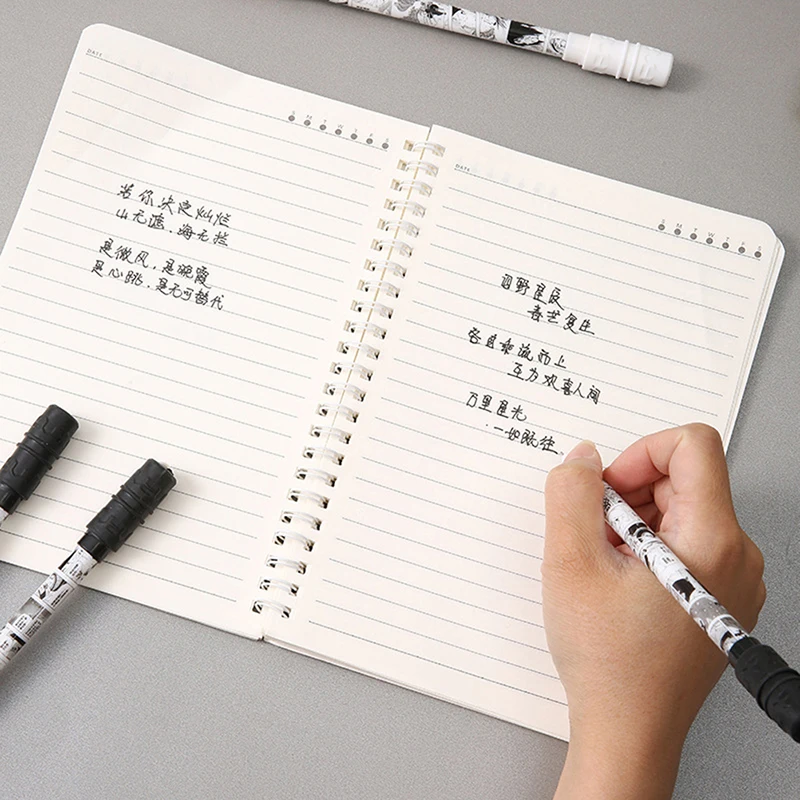 DATE
S M T W T F S
若你决定灿烂
山无遮，海无拦
是微风，是晚霞
是心跳，是无可替代
DATE
S M T W T F S
沼野星辰
喜芒复生
各自乘流而上
互为欢喜人间
万里星光
一如既往